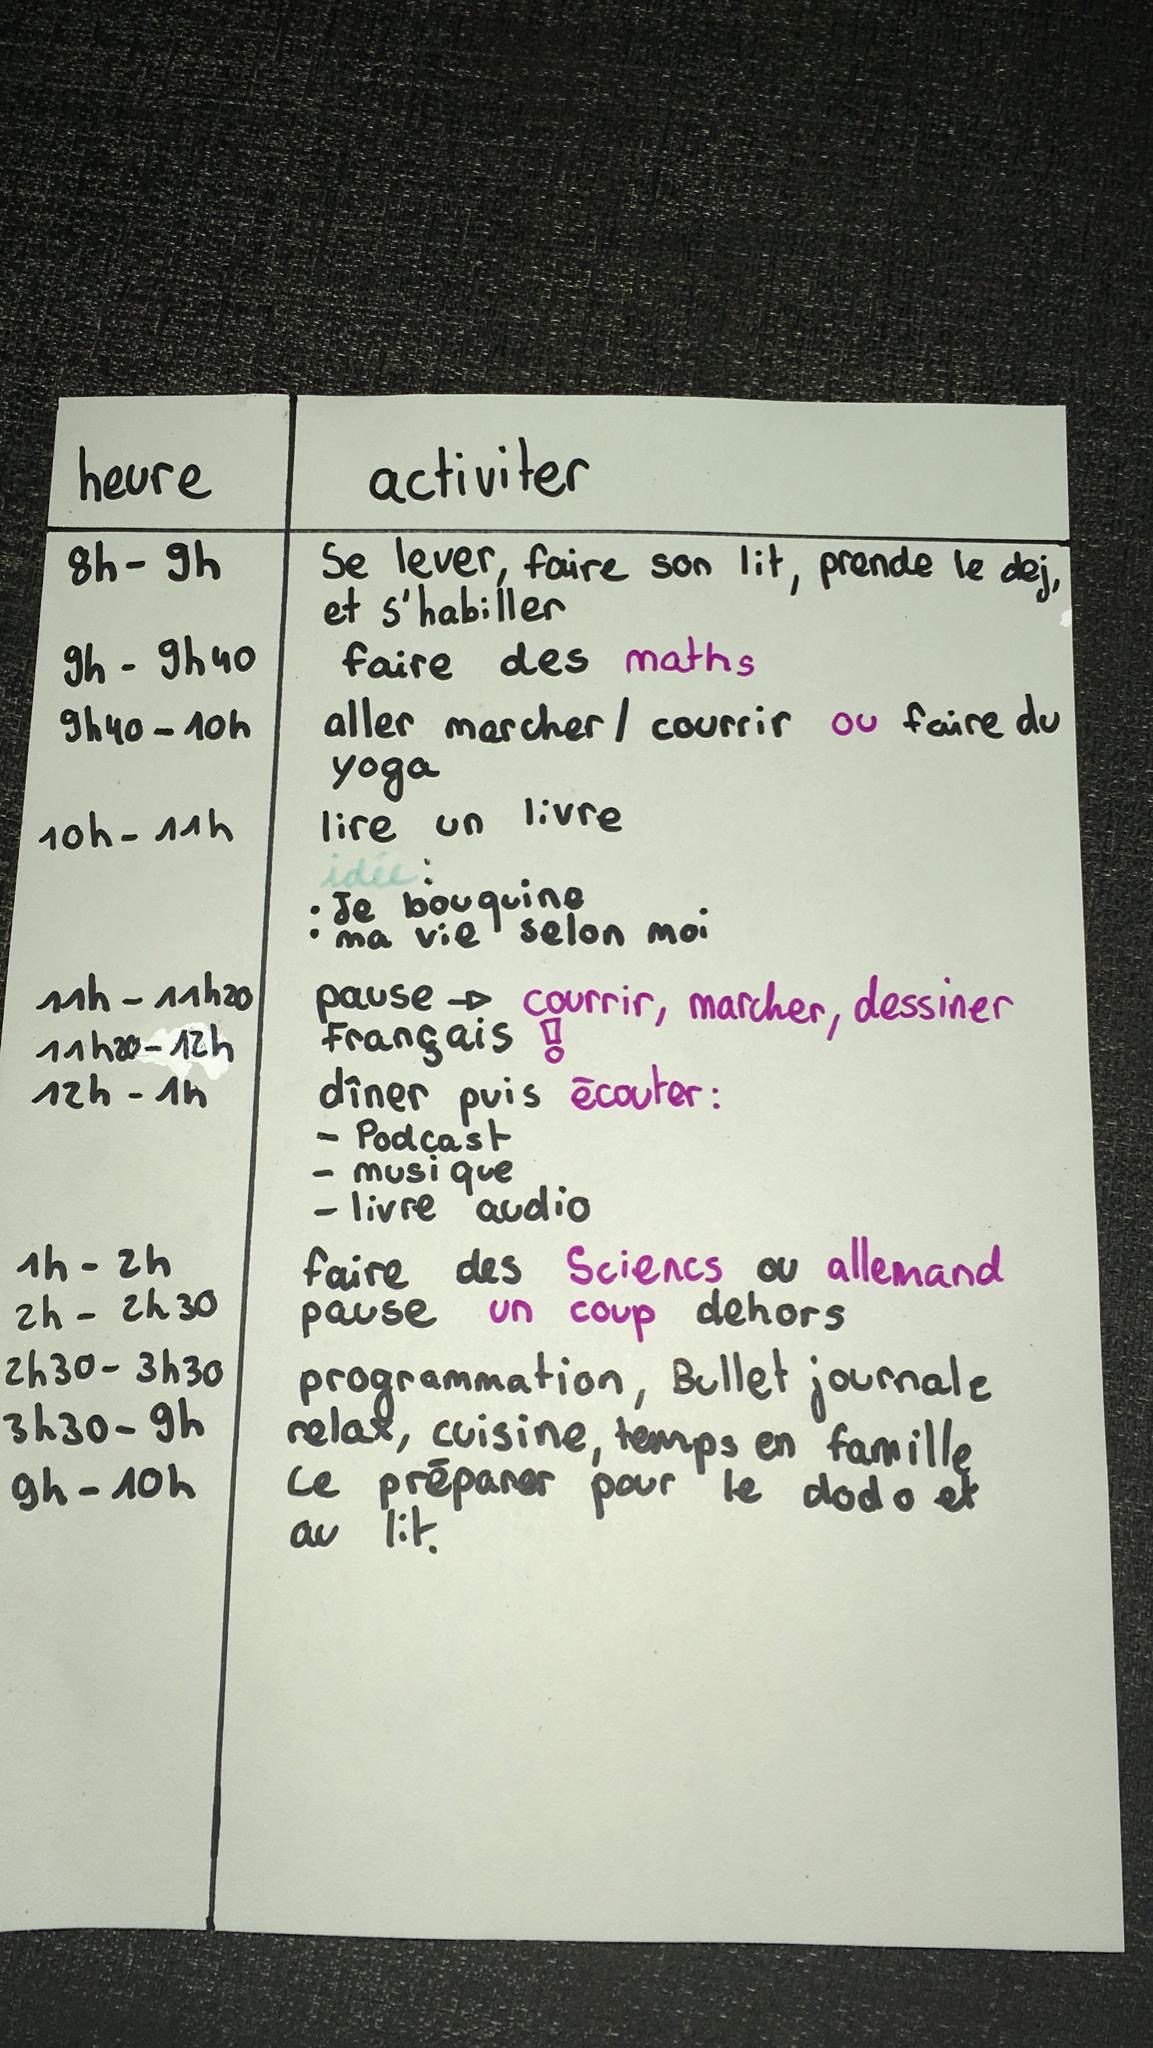 heure activiter
8h - 9h Se lever, faire son lit, prende le dej,
et s'habiller
9h - 9h40 faire des maths
9h40 - 10h aller marcher / courrir ou faire du
yoga
10h - 11h lire un livre
idée :
• Je bouquine
• ma vie selon moi
11h - 11h20 pause → courrir, marcher, dessiner
11h20 - 12h Français !
12h - 1h dîner puis écouter :
- Podcast
- musique
- livre audio
1h - 2h faire des Sciencs ou allemand
2h - 2h30 pause un coup dehors
2h30 - 3h30 programmation, Bullet journale
3h30 - 9h relax, cuisine, temps en famille
9h - 10h Ce préparer pour le dodo et
au lit.